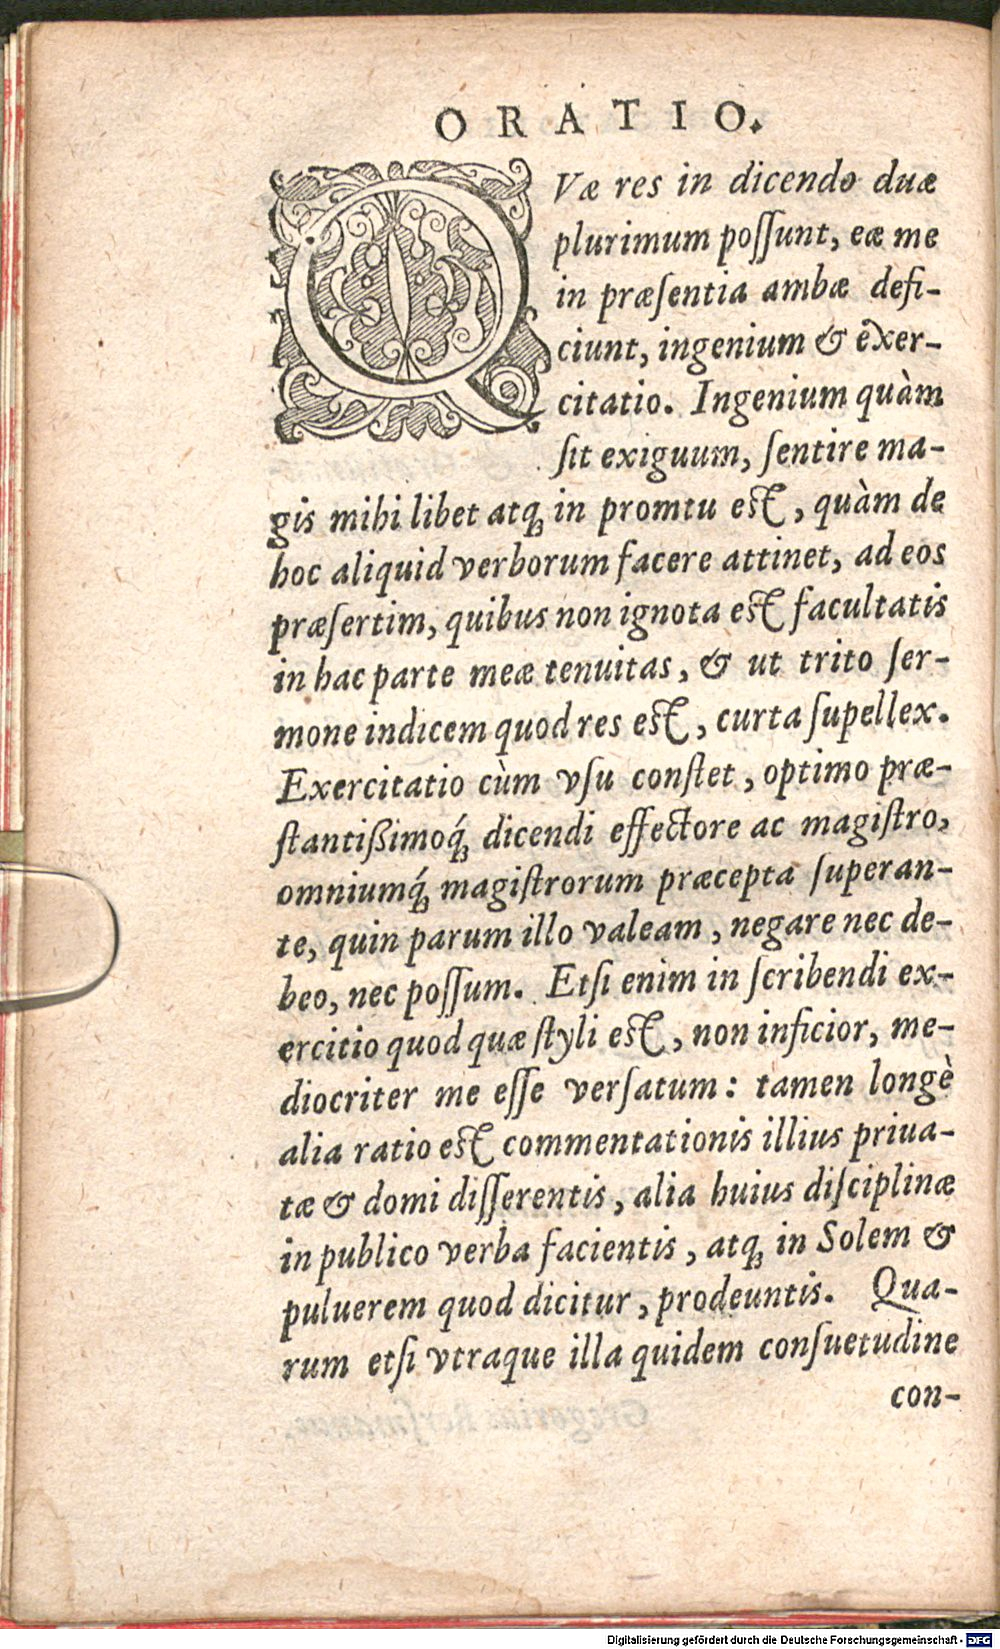 ORATIO.
QVæ res in dicendo duæ
plurimum poſſunt, eæ me
in præſentia ambæ defi-
ciunt, ingenium & exer-
citatio. Ingenium quàm
ſit exiguum, ſentire ma-
gis mihi libet atq́; in promtu eſt, quàm de
hoc aliquid verborum facere attinet, ad eos
præſertim, quibus non ignota eſt facultatis
in hac parte meæ tenuitas, & ut trito ſer-
mone indicem quod res eſt, curta ſupellex.
Exercitatio cùm vſu conſtet, optimo præ-
ſtantißimoq́; dicendi effectore ac magiſtro,
omniumq́; magiſtrorum præcepta ſuperan-
te, quin parum illo valeam, negare nec de-
beo, nec poſſum. Etſi enim in ſcribendi ex-
ercitio quod quæ ſtyli eſt, non inficior, me-
diocriter me eſſe verſatum: tamen longè
alia ratio eſt commentationis illius priua-
tæ & domi diſſerentis, alia huius diſciplinæ
in publico verba facientis, atq; in Solem &
puluerem quod dicitur, prodeuntis. Qua-
rum etſi vtraque illa quidem conſuetudine
con-
Digitalisierung gefördert durch die Deutsche Forschungsgemeinschaft - DFG